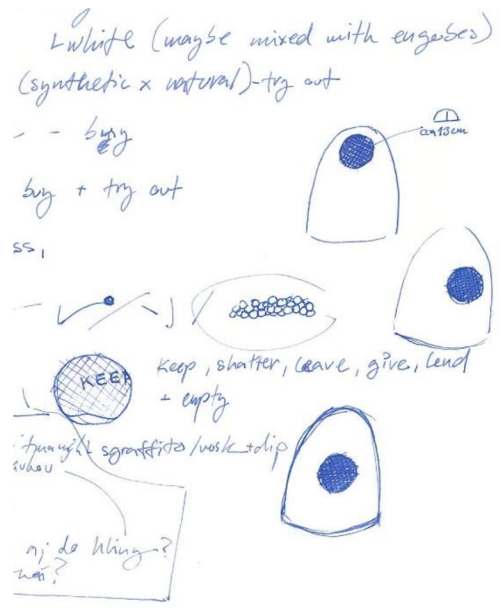 white (maybe mixed with engobes)
(synthetic x natural) - try out
buy
can 13cm
buy + try out
ss,
KEEP
Keep, shatter, leave, give, lend
+ empty
sgraffito / vosk + dip
aj do hliny?